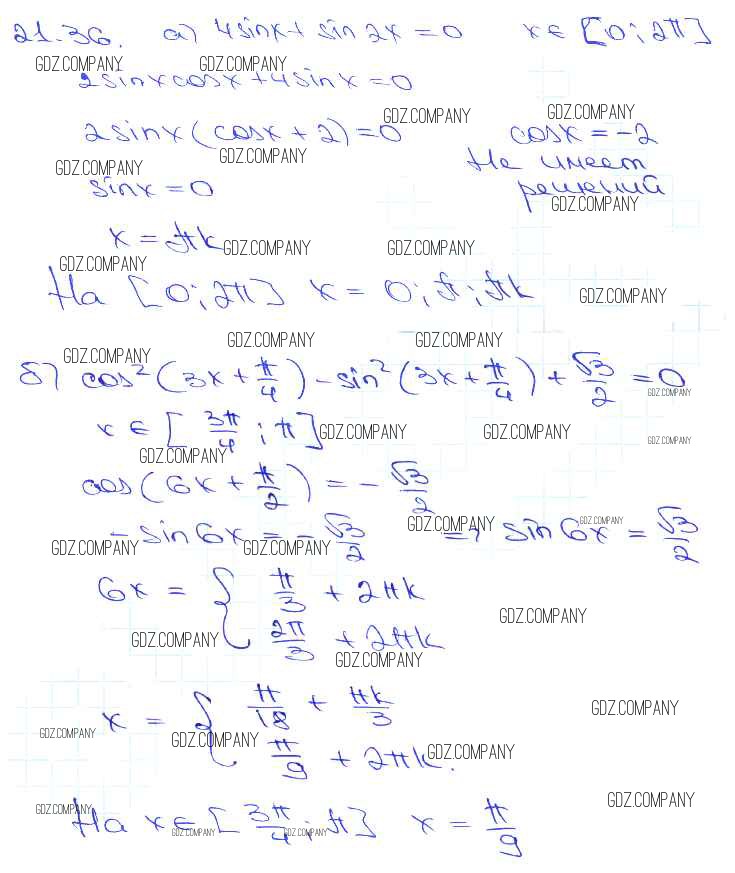 21.36. а) 4sinx + sin 2x = 0 x ∈ [0; 2π]
GDZ.COMPANY GDZ.COMPANY
2sinx cosx + 4sinx = 0
GDZ.COMPANY GDZ.COMPANY
2sinx (cosx + 2) = 0 cosx = -2
GDZ.COMPANY GDZ.COMPANY Не имеет
sinx = 0 решений
GDZ.COMPANY
x = πk GDZ.COMPANY GDZ.COMPANY
GDZ.COMPANY
На [0; 2π] x = 0; π; πk GDZ.COMPANY
GDZ.COMPANY GDZ.COMPANY
GDZ.COMPANY
б) cos²(3x + π/4) - sin²(3x + π/4) + √3/2 = 0
GDZ.COMPANY
x ∈ [3π/4; π] GDZ.COMPANY GDZ.COMPANY GDZ.COMPANY
GDZ.COMPANY
cos(6x + π/2) = - √3/2
GDZ.COMPANY GDZ.COMPANY
- sin6x = - √3/2 => sin6x = √3/2
GDZ.COMPANY GDZ.COMPANY
6x = { π/3 + 2πk
GDZ.COMPANY
2π/3 + 2πk
GDZ.COMPANY
GDZ.COMPANY
x = { π/18 + πk/3 GDZ.COMPANY
GDZ.COMPANY GDZ.COMPANY GDZ.COMPANY
π/9 + 2πk.
GDZ.COMPANY GDZ.COMPANY
На x ∈ [3π/4; π] x = π/9
GDZ.COMPANY GDZ.COMPANY